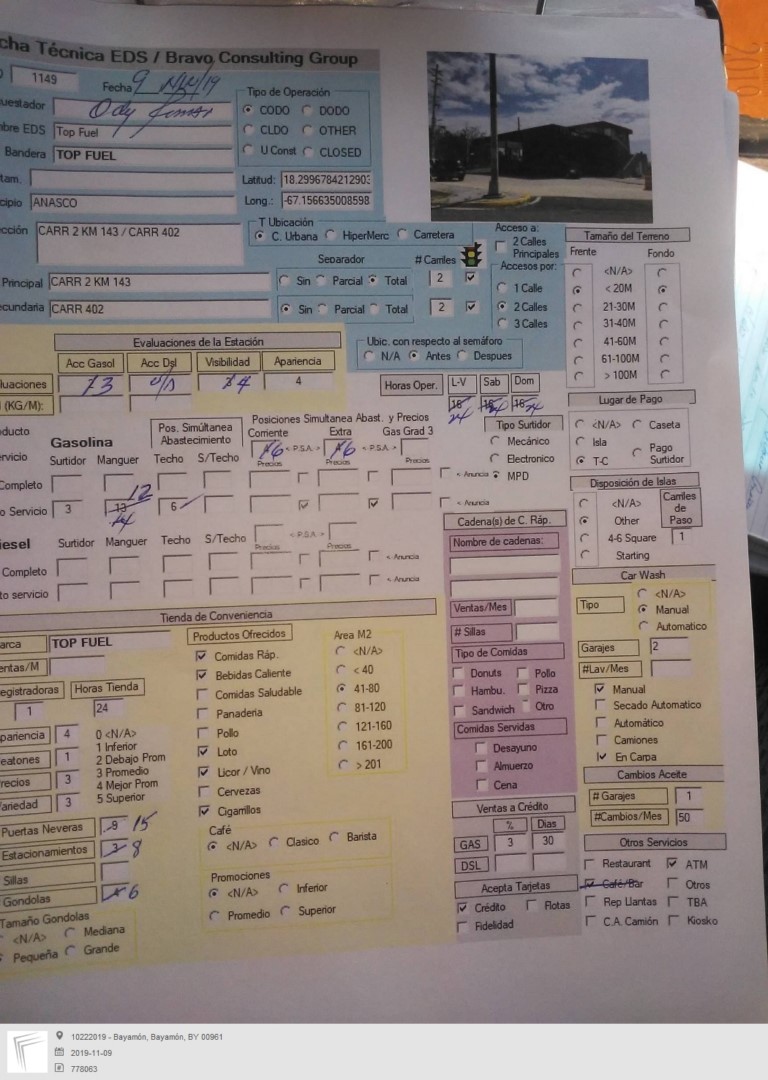 cha Técnica EDS / Bravo Consulting Group
1149
Fecha 9 Nov/19
uestador
Tipo de Operación
CODO DODO
CLDO OTHER
U Const CLOSED
bre EDS Top Fuel
Bandera TOP FUEL
tam.
Latitud: 18.2996784212903
cipio ANASCO
Long.: -67.156635008598
cción CARR 2 KM 143 / CARR 402
T Ubicación
C. Urbana HiperMerc Carretera
Separador # Carriles
Principal CARR 2 KM 143 Sin Parcial Total 2
ecundaria CARR 402 Sin Parcial Total 2
Acceso a:
2 Calles
Principales
Accesos por:
1 Calle
2 Calles
3 Calles
Tamaño del Terreno
Frente Fondo
<N/A>
< 20M
21-30M
31-40M
41-60M
61-100M
> 100M
Evaluaciones de la Estación
Acc Gasol Acc Dsl Visibilidad Apariencia
luaciones 3 4 4
(KG/M):
Ubic. con respecto al semáforo
N/A Antes Despues
Horas Oper. L-V Sab Dom
24 24 24
Lugar de Pago
<N/A> Caseta
Isla
T-C Pago
Surtidor
ducto
rvicio
Gasolina
Surtidor Manguer
Pos. Simultánea
Abastecimiento
Techo S/Techo
Posiciones Simultanea Abast. y Precios
Corriente Extra Gas Grad 3
6 < P.S.A. > 6 < P.S.A. >
Precios Precios Precios
Completo < Anuncia
o Servicio 3 12 6 < Anuncia
Tipo Surtidor
Mecánico
Electronico
MPD
Disposición de Islas
<N/A>
Other
4-6 Square
Starting
Carriles
de
Paso
1
iesel Surtidor Manguer Techo S/Techo < P.S.A. >
Precios Precios
Completo < Anuncia
to servicio < Anuncia
Cadena(s) de C. Ráp.
Nombre de cadenas:
Ventas/Mes
# Sillas
Tipo de Comidas
Donuts Pollo
Hambu. Pizza
Sandwich Otro
Comidas Servidas
Desayuno
Almuerzo
Cena
Car Wash
Tipo
<N/A>
Manual
Automatico
Garajes 2
#Lav/Mes
Manual
Secado Automatico
Automático
Camiones
En Carpa
Tienda de Conveniencia
arca TOP FUEL
entas/M
egistradoras Horas Tienda
1 24
pariencia 4
eatones 1
recios 3
ariedad 3
0 <N/A>
1 Inferior
2 Debajo Prom
3 Promedio
4 Mejor Prom
5 Superior
Puertas Neveras 15
Estacionamientos 8
Sillas
Gondolas 6
Tamaño Gondolas
<N/A> Mediana
Pequeña Grande
Productos Ofrecidos
Comidas Ráp.
Bebidas Caliente
Comidas Saludable
Panaderia
Pollo
Loto
Licor / Vino
Cervezas
Cigarrillos
Area M2
<N/A>
< 40
41-80
81-120
121-160
161-200
> 201
Café
<N/A> Clasico Barista
Promociones
<N/A> Inferior
Promedio Superior
Ventas a Crédito
% Dias
GAS 3 30
DSL
Acepta Tarjetas
Crédito Flotas
Fidelidad
Cambios Aceite
# Garajes 1
#Cambios/Mes 50
Otros Servicios
Restaurant ATM
Café/Bar Otros
Rep Llantas TBA
C.A. Camión Kiosko
10222019 - Bayamón, Bayamón, BY 00961
2019-11-09
778063